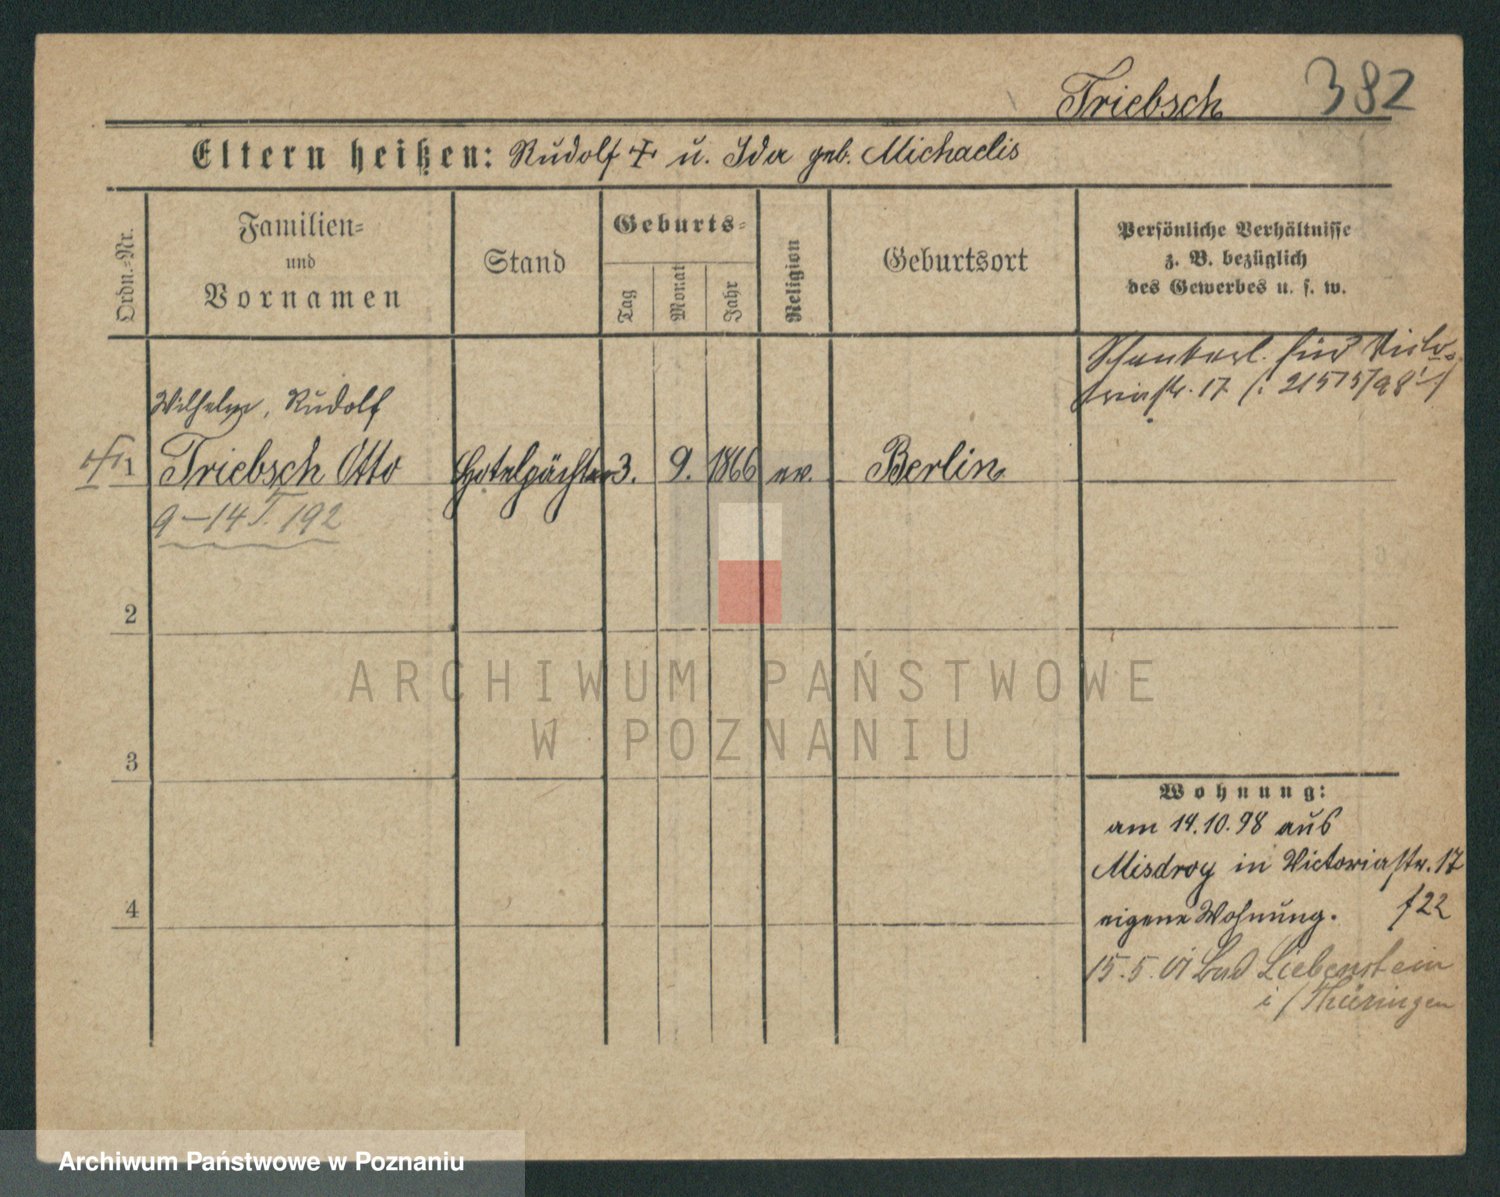 Triebsch 382
Eltern heißen: Rudolf ✝ u. Ida geb. Michaelis
Ordn.=Nr.
Familien=
und
Vornamen
Stand
Geburts=
Tag
Monat
Jahr
Religion
Geburtsort
Persönliche Verhältnisse
z. B. bezüglich
des Gewerbes u. s. w.
Schankerl. für Victo
riastr. 17 /: 21575/98 :/
Wilhelm, Rudolf
1 Triebsch Otto Hotelpächter 3. 9. 1866 ev. Berlin
9–14 T. 192
2
3
4
Wohnung:
am 14.10.98 aus
Misdroy in Victoriastr. 17
eigene Wohnung. f 22
15.5.01 Bad Liebenstein
i/Thüringen
ARCHIWUM PAŃSTWOWE
W POZNANIU
Archiwum Państwowe w Poznaniu